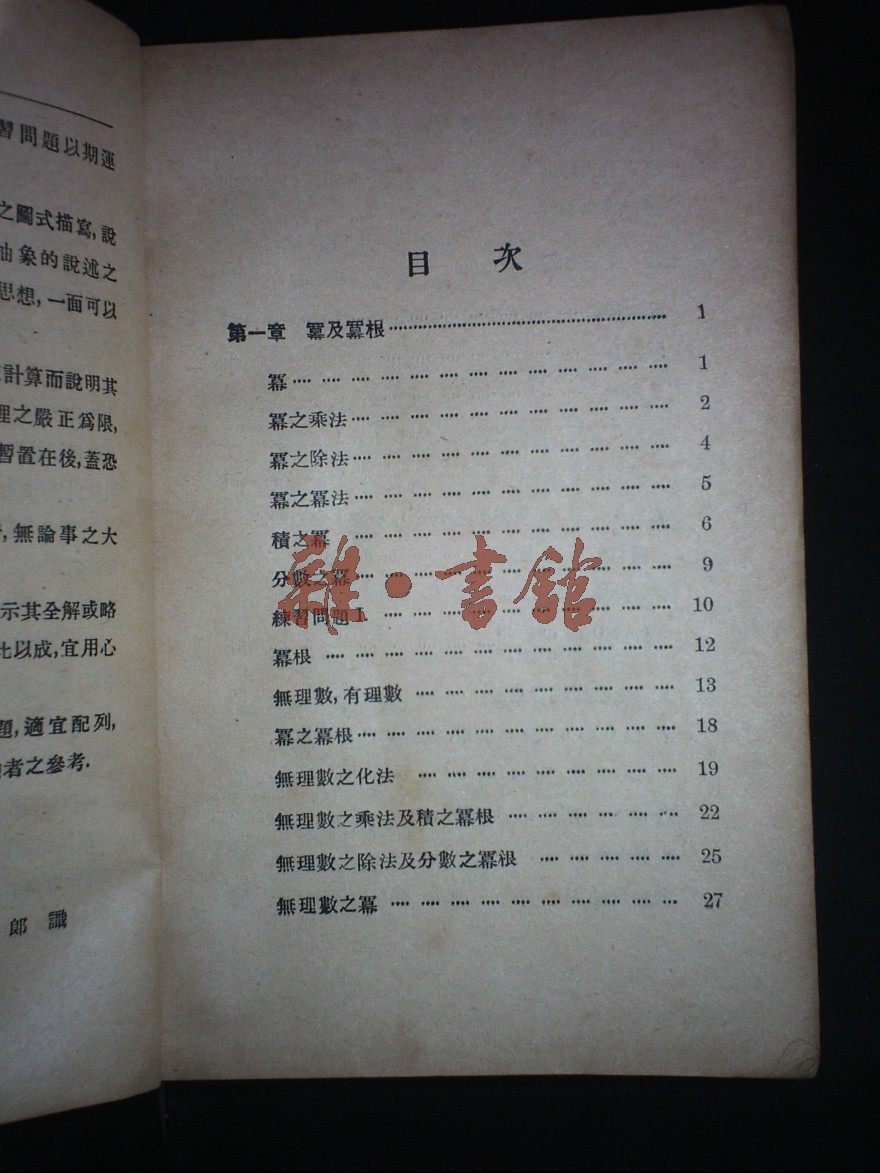 習問題以期運
之圖式描寫,說
抽象的說述之
思想,一面可以
計算而說明其
理之嚴正爲限,
暫置在後,蓋恐
,無論事之大
示其全解或略
此以成,宜用心
題,適宜配列,
者之參考.
郎 識
目 次
第一章 冪及冪根 1
冪 1
冪之乘法 2
冪之除法 4
冪之冪法 5
積之冪 6
分數之冪 9
練習問題 I. 10
冪根 12
無理數,有理數 13
冪之冪根 18
無理數之化法 19
無理數之乘法及積之冪根 22
無理數之除法及分數之冪根 25
無理數之冪 27
雜·書館